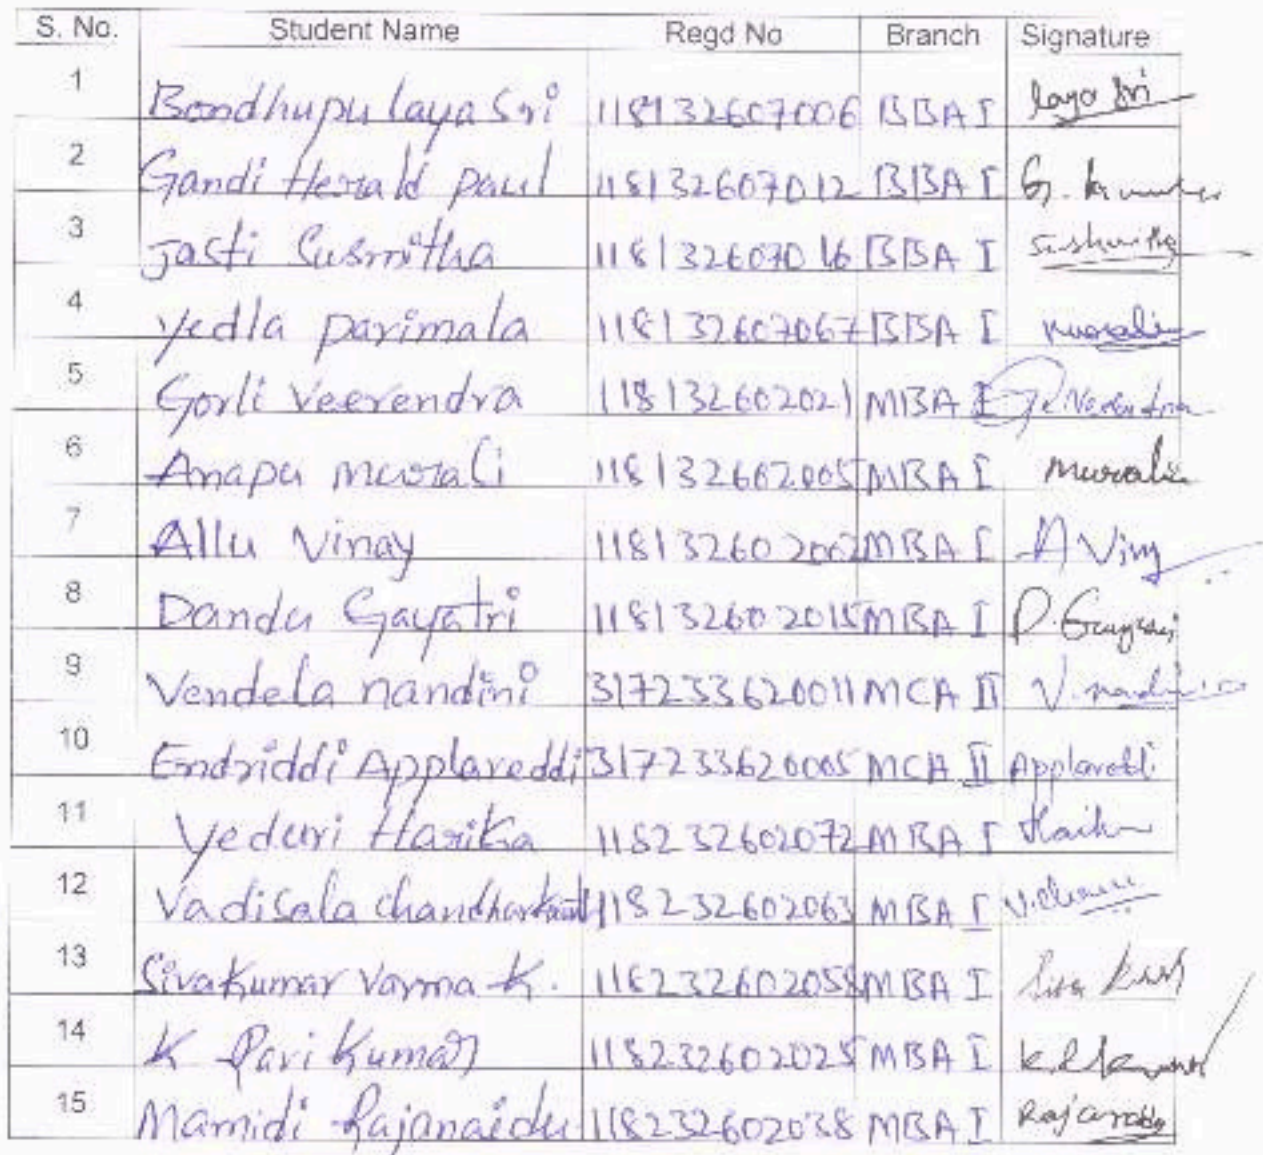 S. No. Student Name Regd No Branch Signature
1 Bondhupu laya Sri 118132607006 BBA I laya Sri
2 Gandi Herald paul 118132607012 BBA I G.
3 Jasti Susmitha 118132607016 BBA I
4 Yedla parimala 118132607067 BBA I
5 Gorli Veerendra 118132602021 MBA I
6 Anapu murali 118132602005 MBA I murali
7 Allu Vinay 118132602002 MBA I A Viny
8 Dandu Gayatri 118132602015 MBA I D.
9 Vendela nandini 317233620011 MCA II V.
10 Endriddi Applareddi 317233620005 MCA II Applareddi
11 Yeduri Harika 118232602072 MBA I
12 Vadisala 118232602063 MBA I
13 Sivakumar Varma K. 118232602058 MBA I
14 K Pavi Kumar 118232602025 MBA I
15 Mamidi Rajanaidu 118232602038 MBA I